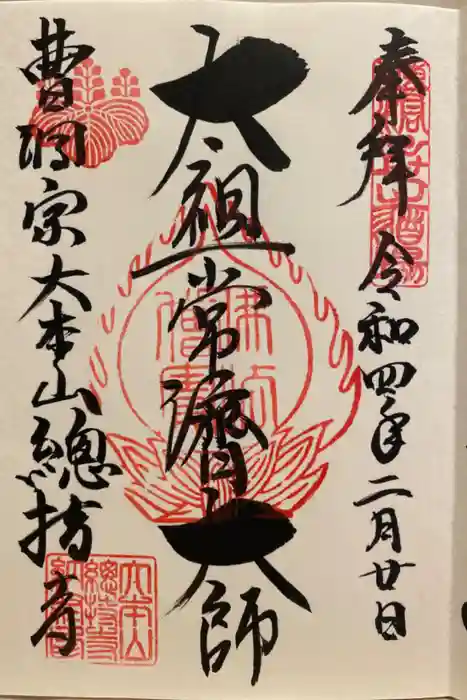 奉拝 令和四年二月廿日
太祖常濟大師
曹洞宗大本山總持寺